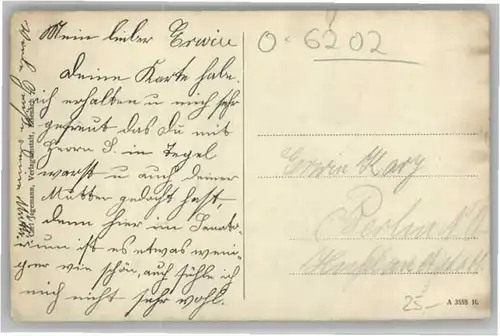 Mein lieber Erwin
Deine Karte habe
ich erhalten u mich sehr
gefreut das Du mit
Herrn S. in Tegel
warst u auch deiner
Mutter gedacht hast,
denn hier im Senato-
rium ist es etwas weni-
ger wie schön, auch fühle ich
mich nicht sehr wohl.
deine Mutter
Jagemann, Verlagsanstalt,
O-6202
Erwin Karg
Berlin
25-
A 3558 16